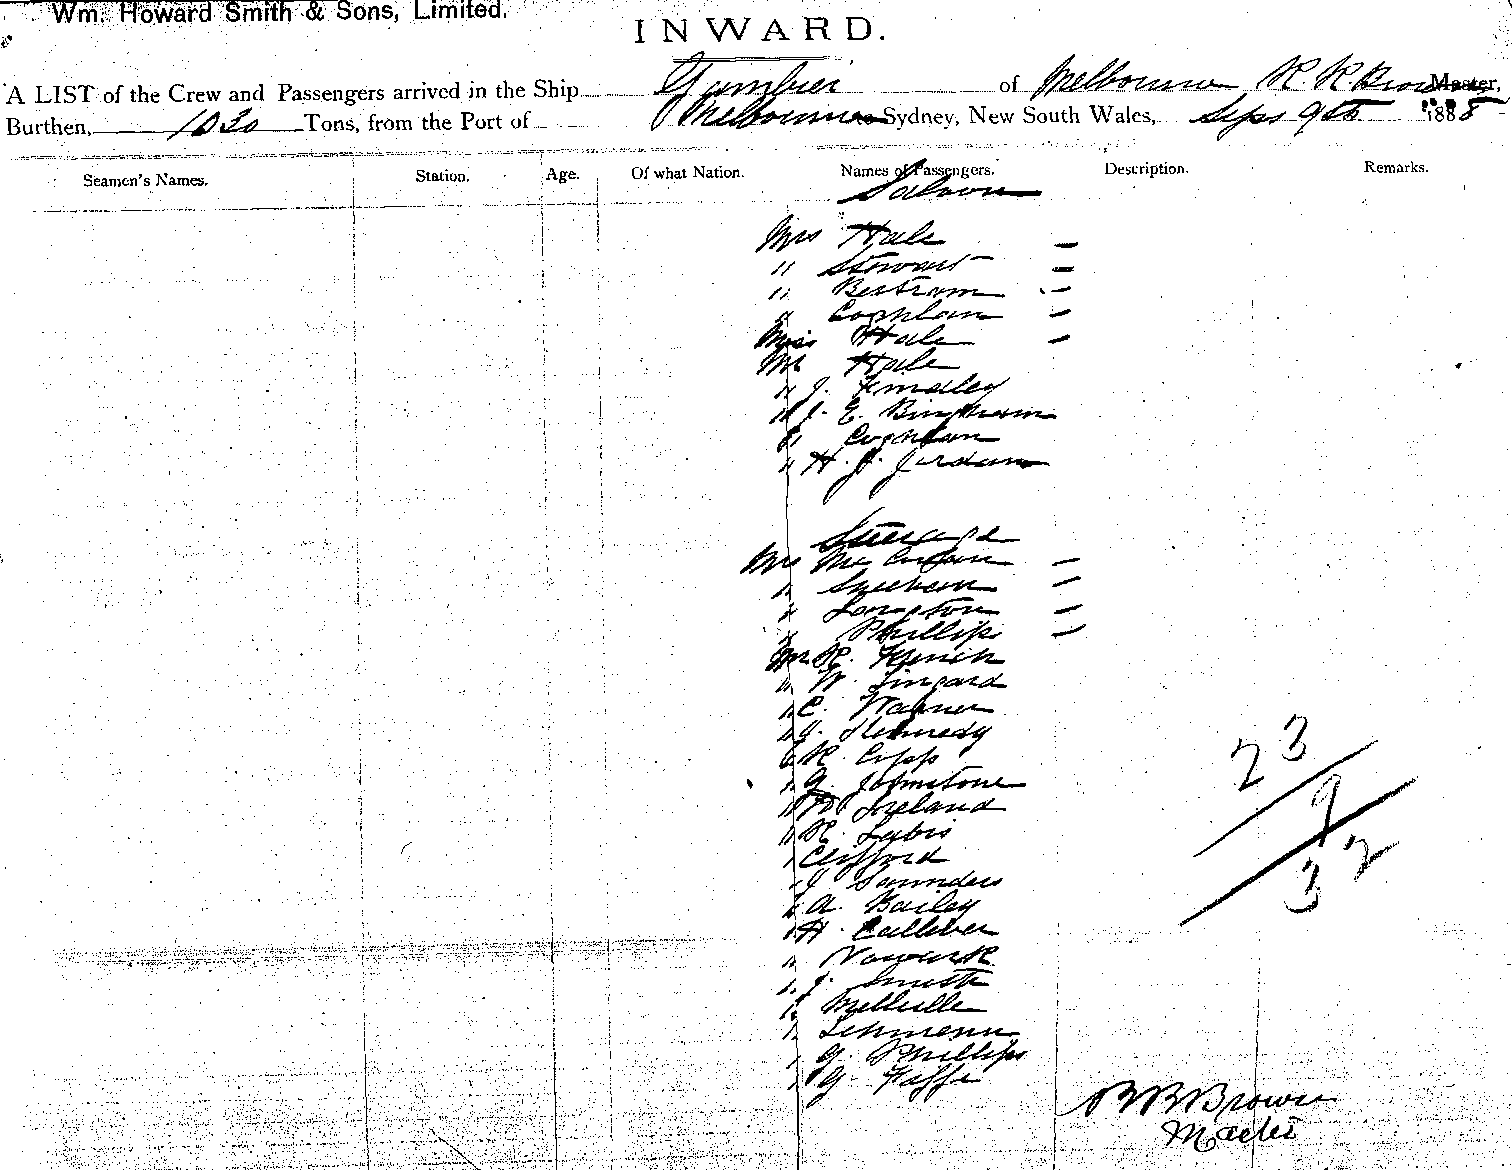 Wm. Howard Smith & Sons, Limited.
INWARD.
A LIST of the Crew and Passengers arrived in the Ship Gambier of Melbourne R. R. Brown Master,
Burthen, 1030 Tons, from the Port of Melbourne to Sydney, New South Wales, Sept 9th 1888
Seamen's Names. Station. Age. Of what Nation. Names of Passengers. Description. Remarks.
Saloon
Mrs Hale —
" Stewart —
" Bertram —
" Coghlan —
Miss Hale —
Mr Hale
" J. Findley
" J. E. Bingham
" Coghlan
" H. J. Jordan
Steerage
Mrs —
" —
" Langton —
" Phillips —
Mr R. French
" W. Lingard
" C. Wagner
" J. Kennedy
" R. Copp
" G. Johnstone
" Ireland
" R.
" Clifford
" J Saunders
" A. Bailey
" H.
"
" J. Smith
" Melville
" Lehmann
" G. Phillips
" G.
23
9
32
R R Brown
Master